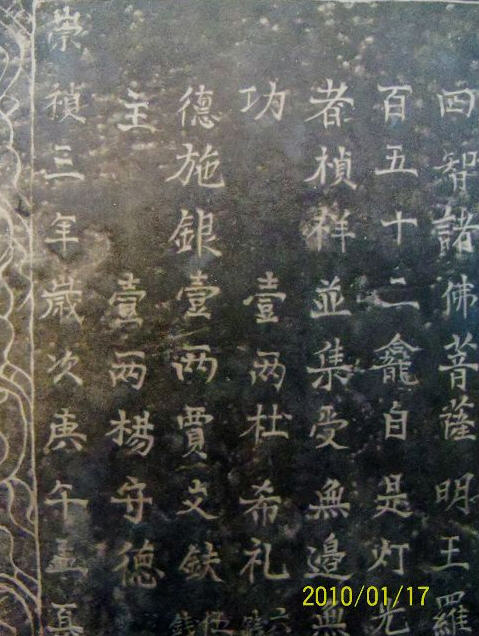 四智諸佛菩薩明王羅
百五十二龕自是灯光
者禎祥並集受無邊無
功 壹两杜希礼
德施銀壹两賈文鈇
主 壹两楊守德
崇禎三年歲次庚午孟夏
2010/01/17